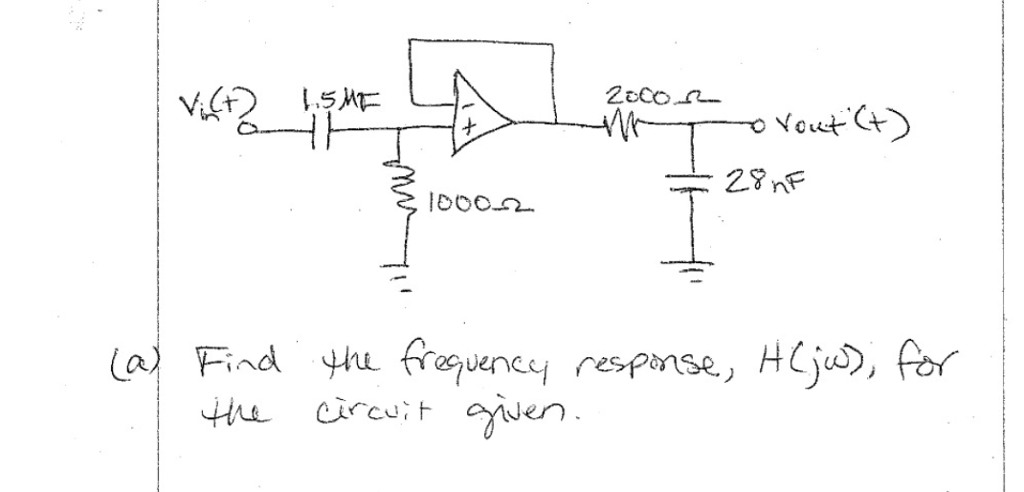 Vin(t) 1.5 MF
2000 Ω
Vout(t)
-
+
1000 Ω
28 nF
(a) Find the frequency response, H(jω), for
the circuit given.